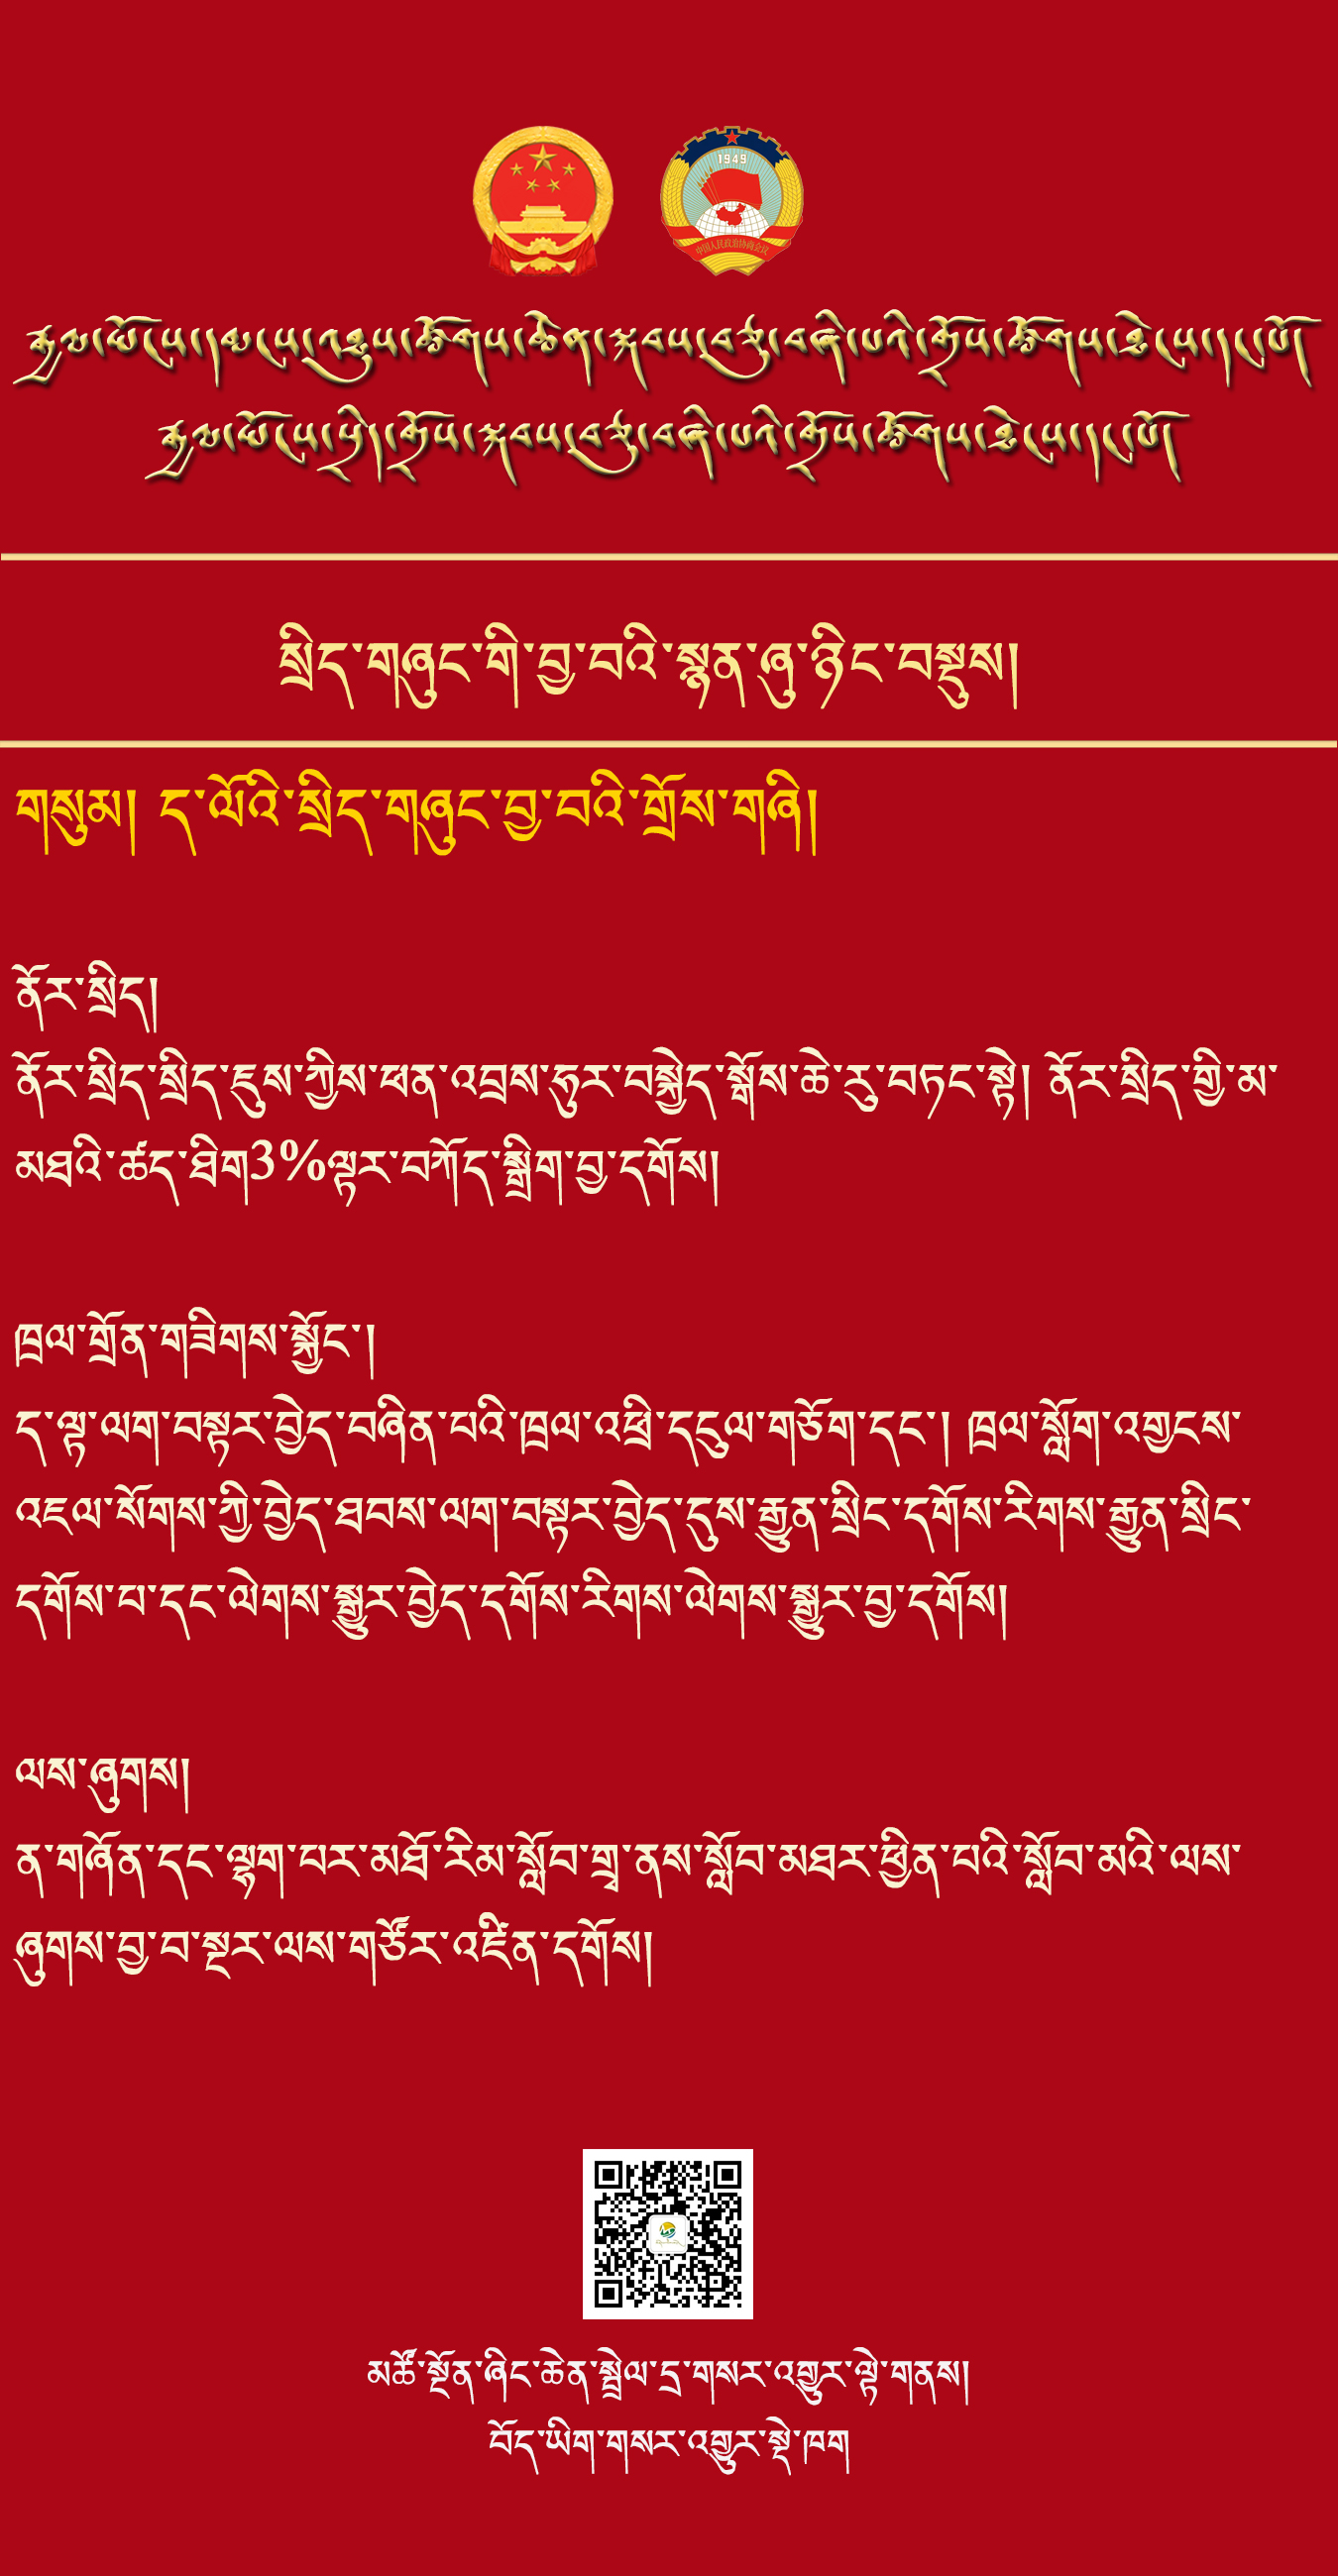 1949
中国人民政治协商会议
རྒྱལ་ཡོངས་དམངས་འཐུས་ཚོགས་ཆེན་སྐབས་བཅུ་བཞི་པའི་གྲོས་ཚོགས་ཐེངས་དང་པོ
རྒྱལ་ཡོངས་སྲིད་གྲོས་སྐབས་བཅུ་བཞི་པའི་གྲོས་ཚོགས་ཐེངས་དང་པོ
སྲིད་གཞུང་གི་བྱ་བའི་སྙན་ཞུ་ཉིང་བསྡུས།
གསུམ། ད་ལོའི་སྲིད་གཞུང་བྱ་བའི་གྲོས་གཞི།
ནོར་སྲིད།
ནོར་སྲིད་སྲིད་ཇུས་ཀྱིས་ཕན་འབྲས་ཧུར་བསྐྱེད་སྒོས་ཆེ་རུ་བཏང་སྟེ། ནོར་སྲིད་གྱི་མ་
མཐའི་ཚད་ཐིག3%ལྟར་བཀོད་སྒྲིག་བྱ་དགོས།
ཁྲལ་གྲོན་གཟིགས་སྐྱོང་།
ད་ལྟ་ལག་བསྟར་བྱེད་བཞིན་པའི་ཁྲལ་འཕྲི་དངུལ་གཅོག་དང་། ཁྲལ་སློག་འགྱངས་
འཇལ་སོགས་ཀྱི་བྱེད་ཐབས་ལག་བསྟར་བྱེད་དུས་རྒྱུན་སྲིང་དགོས་རིགས་རྒྱུན་སྲིང་
དགོས་པ་དང་ལེགས་སྒྱུར་བྱེད་དགོས་རིགས་ལེགས་སྒྱུར་བྱ་དགོས།
ལས་ཞུགས།
ན་གཞོན་དང་ལྷག་པར་མཐོ་རིམ་སློབ་གྲྭ་ནས་སློབ་མཐར་ཕྱིན་པའི་སློབ་མའི་ལས་
ཞུགས་བྱ་བ་སྔར་ལས་གཙོར་འཛིན་དགོས།
མཚོ་སྔོན་ཞིང་ཆེན་སྦྲེལ་དྲ་གསར་འགྱུར་ལྟེ་གནས།
བོད་ཡིག་གསར་འགྱུར་སྡེ་ཁག